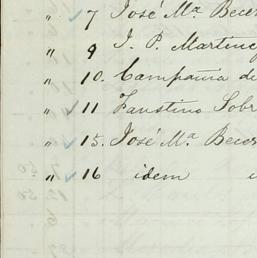 " 7 José Mª Becer
" 9 J. P. Martinez
" 10. Campaña de
" 11 Faustino Sobr
" 15. José Mª Becer
" 16 idem